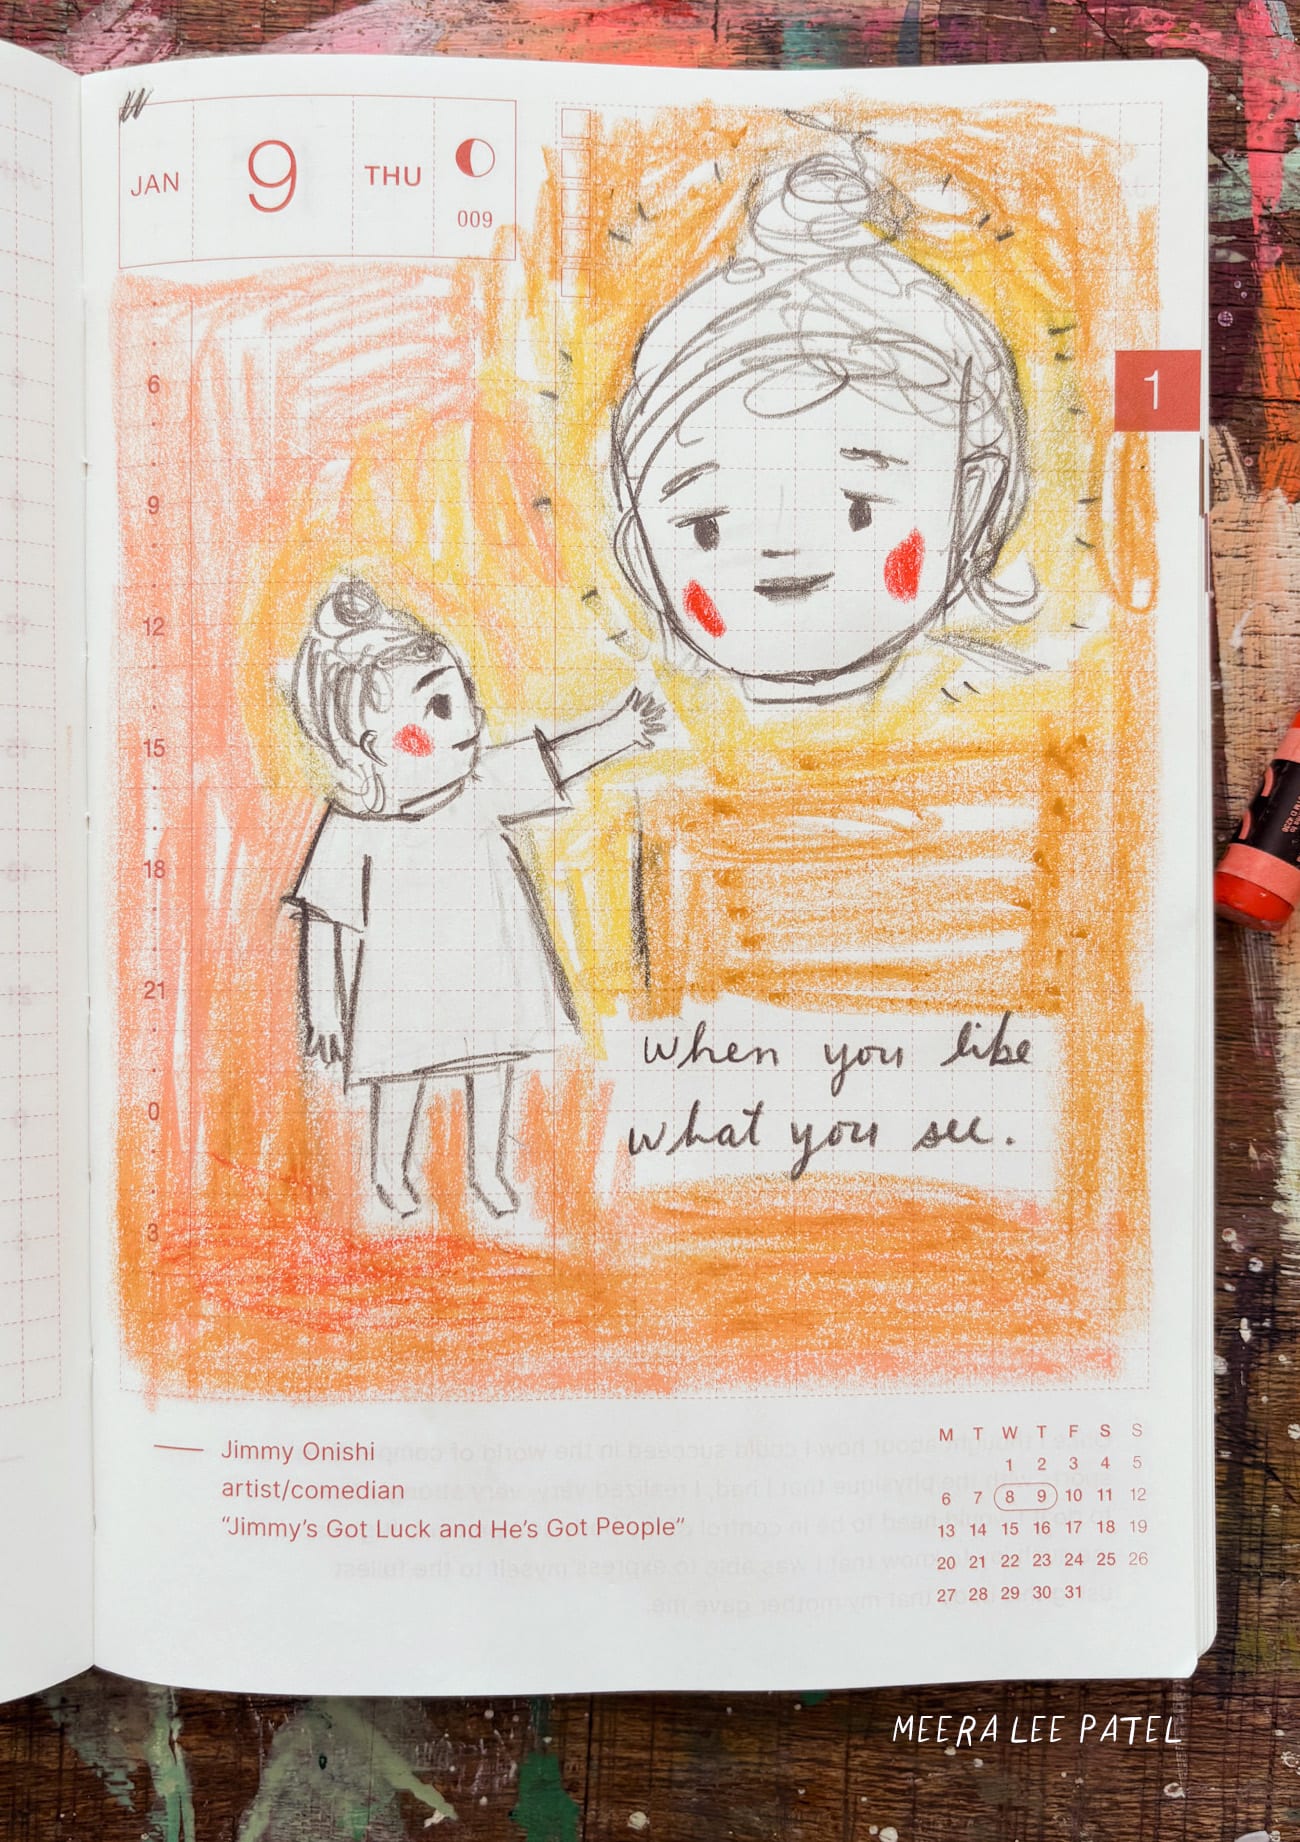 JAN 9 THU
009
1
6
9
12
15
18
21
0
3
when you like
what you see.
Jimmy Onishi
artist/comedian
“Jimmy’s Got Luck and He’s Got People”
M T W T F S S
1 2 3 4 5
6 7 8 9 10 11 12
13 14 15 16 17 18 19
20 21 22 23 24 25 26
27 28 29 30 31
MEERA LEE PATEL